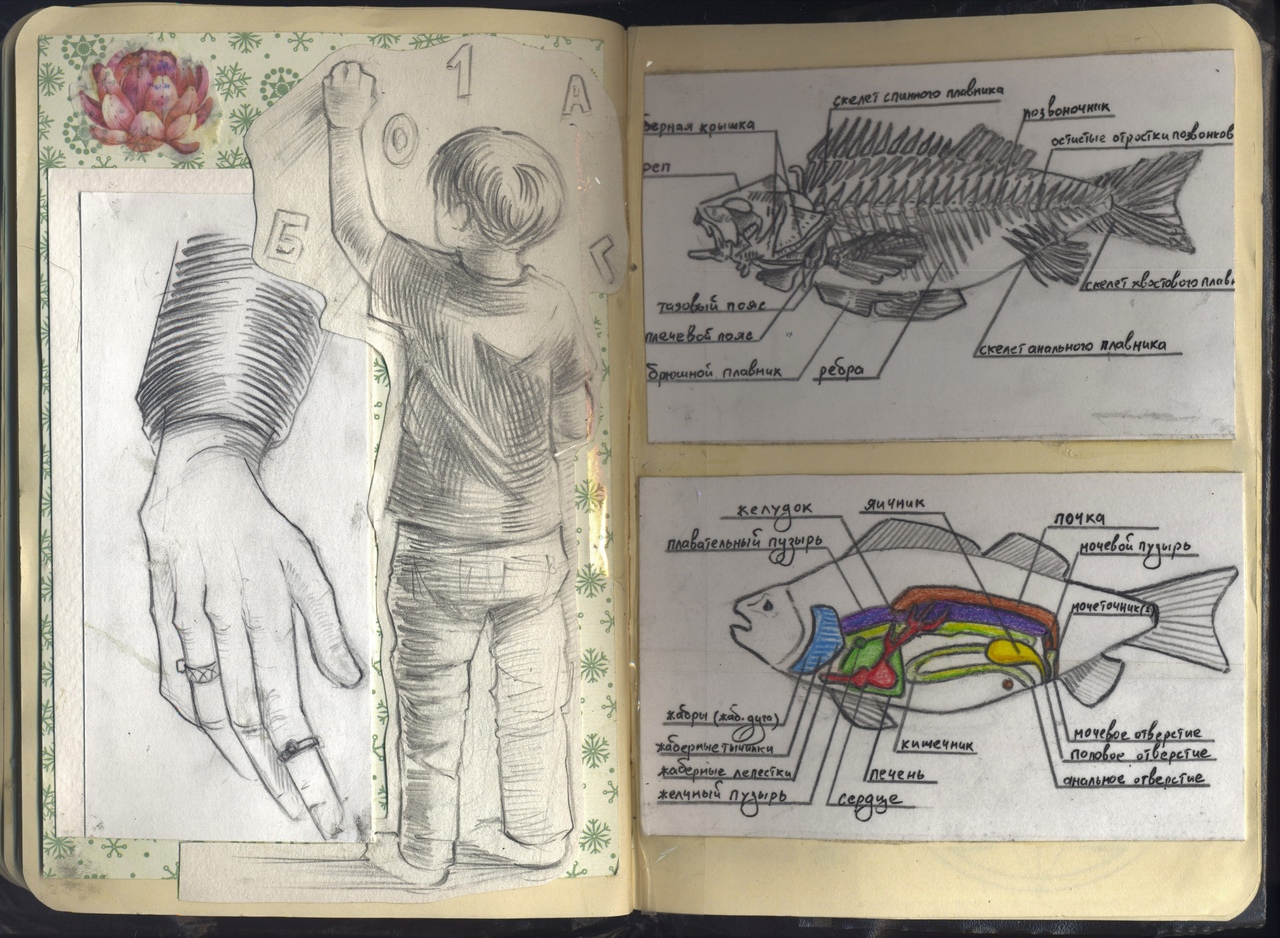 1
А
О
Б
Г
скелет спинного плавника
позвоночник
берная крышка
остистые отростки позвонков
реп
скелет хвостового плавн
тазовый пояс
плечевой пояс
скелет анального плавника
брюшной плавник
ребра
желудок
яичник
почка
плавательный пузырь
мочевой пузырь
мочеточник(?)
жабры (жаб. дуга)
жаберные тычинки
жаберные лепестки
желчный пузырь
кишечник
печень
сердце
мочевое отверстие
половое отверстие
анальное отверстие